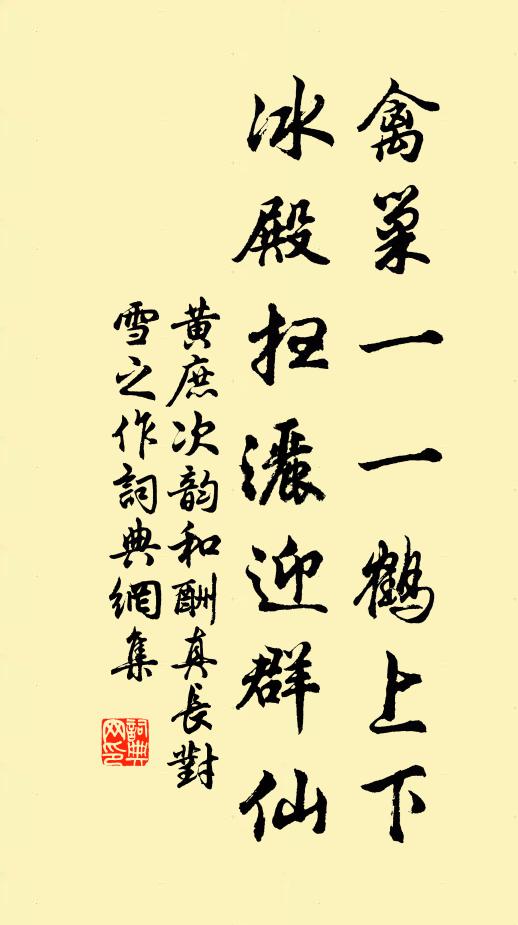 禽巢一一鶴上下
冰殿扫灑迎群仙
黃庶次韵和酬真長對
雪之作詞典網集
詞典网印